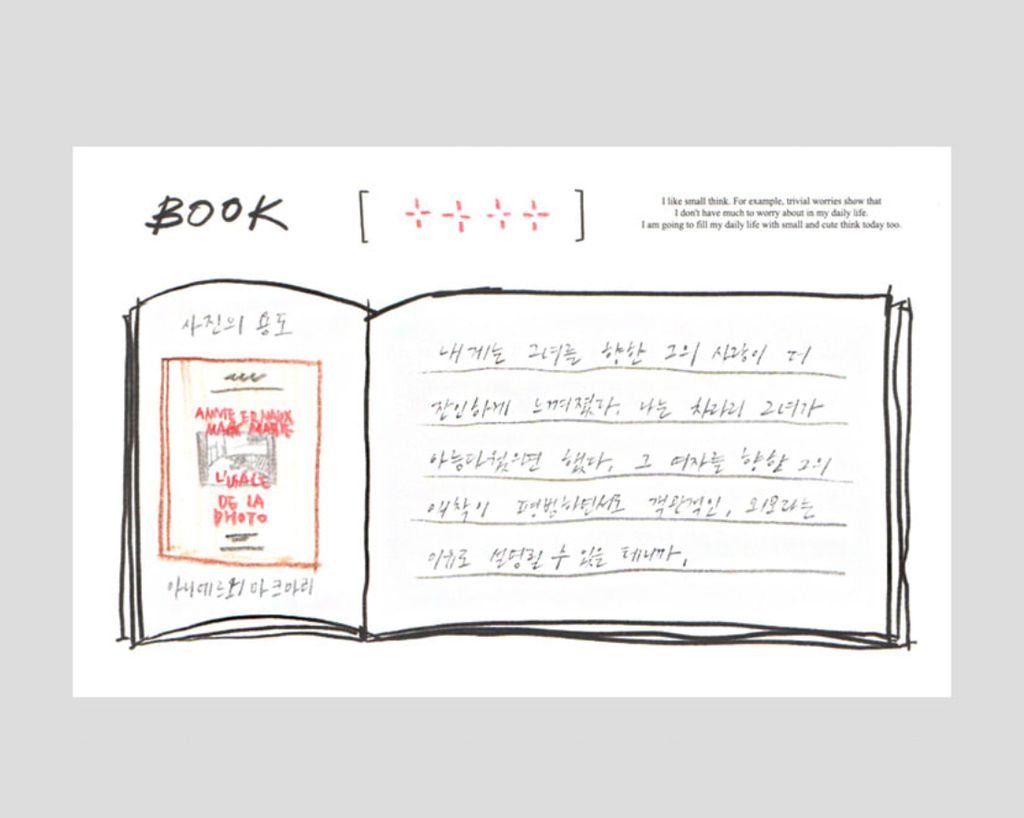 BOOK
I like small think. For example, trivial worries show that
I don't have much to worry about in my daily life.
I am going to fill my daily life with small and cute think today too.
사진의 용도
ANNIE ERNAUX
MARC MARIE
L'USAGE
DE LA
PHOTO
아니에르노 마크마리
내게는 그녀를 향한 그의 사랑이 더
잔인하게 느껴졌다. 나는 차라리 그녀가
아름다웠으면 했다. 그 여자를 향한 그의
애착이 평범하면서도 객관적인, 외모라는
이유로 설명될 수 있을 테니까.